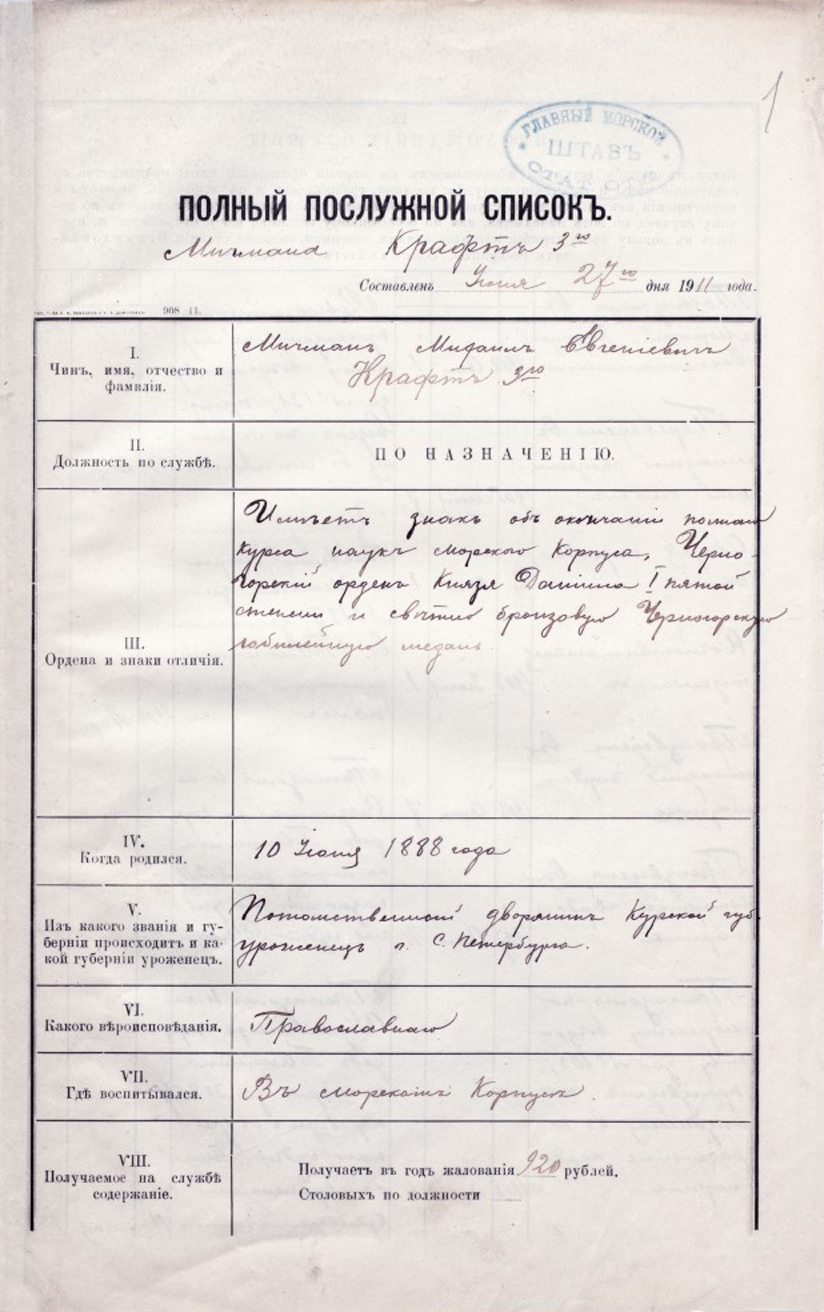 1
ГЛАВНЫЙ МОРСКОЙ
ШТАБЪ
СТАТ. ОТД.
ПОЛНЫЙ ПОСЛУЖНОЙ СПИСОКЪ.
Мичмана Крафтъ 3го
Составленъ Іюня 27го дня 1911 года.
908—11.
I.
Чинъ, имя, отчество и
фамилія.
Мичманъ Михаилъ Евгеніевичъ
Крафтъ 3го
II.
Должность по службѣ.
ПО НАЗНАЧЕНІЮ.
III.
Ордена и знаки отличія.
Имѣетъ знакъ объ окончаніи полнаго
курса наукъ Морского Корпуса, Черно-
горскій орденъ Князя Даніила I пятой
степени и свѣтло бронзовую Черногорскую
юбилейную медаль.
IV.
Когда родился.
10 Іюня 1888 года
V.
Изъ какого званія и гу-
берніи происходитъ и ка-
кой губерніи уроженецъ.
Потомственный дворянинъ Курской губ.
уроженецъ г. С. Петербурга.
VI.
Какого вѣроисповѣданія.
Православнаго
VII.
Гдѣ воспитывался.
Въ Морскомъ Корпусѣ.
VIII.
Получаемое на службѣ
содержаніе.
Получаетъ въ годъ жалованія 920 рублей.
Столовыхъ по должности —